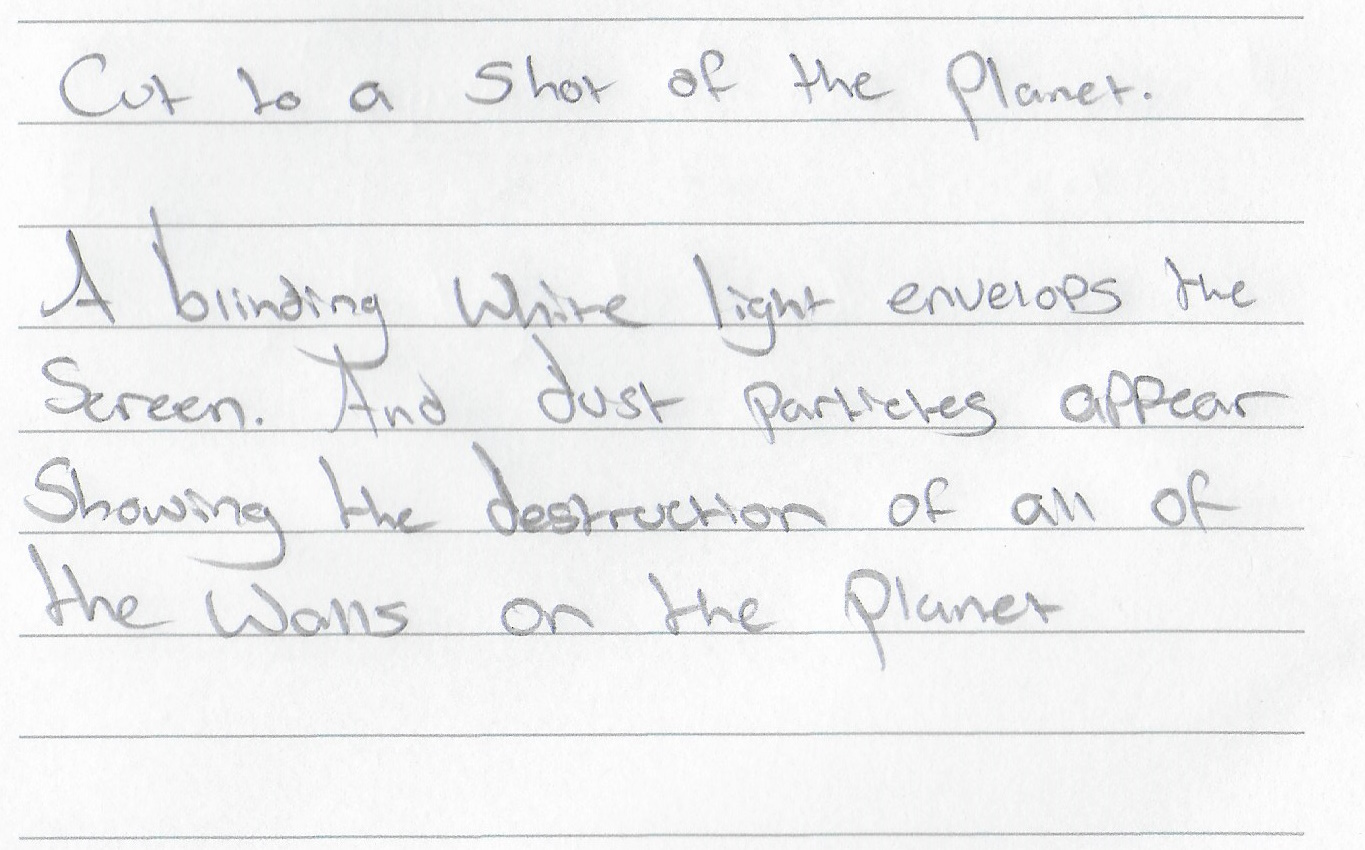 Cut to a Shot of the Planet.
A blinding White light envelops the
Screen. And dust particles appear
Showing the destruction of all of
the Walls on the Planet